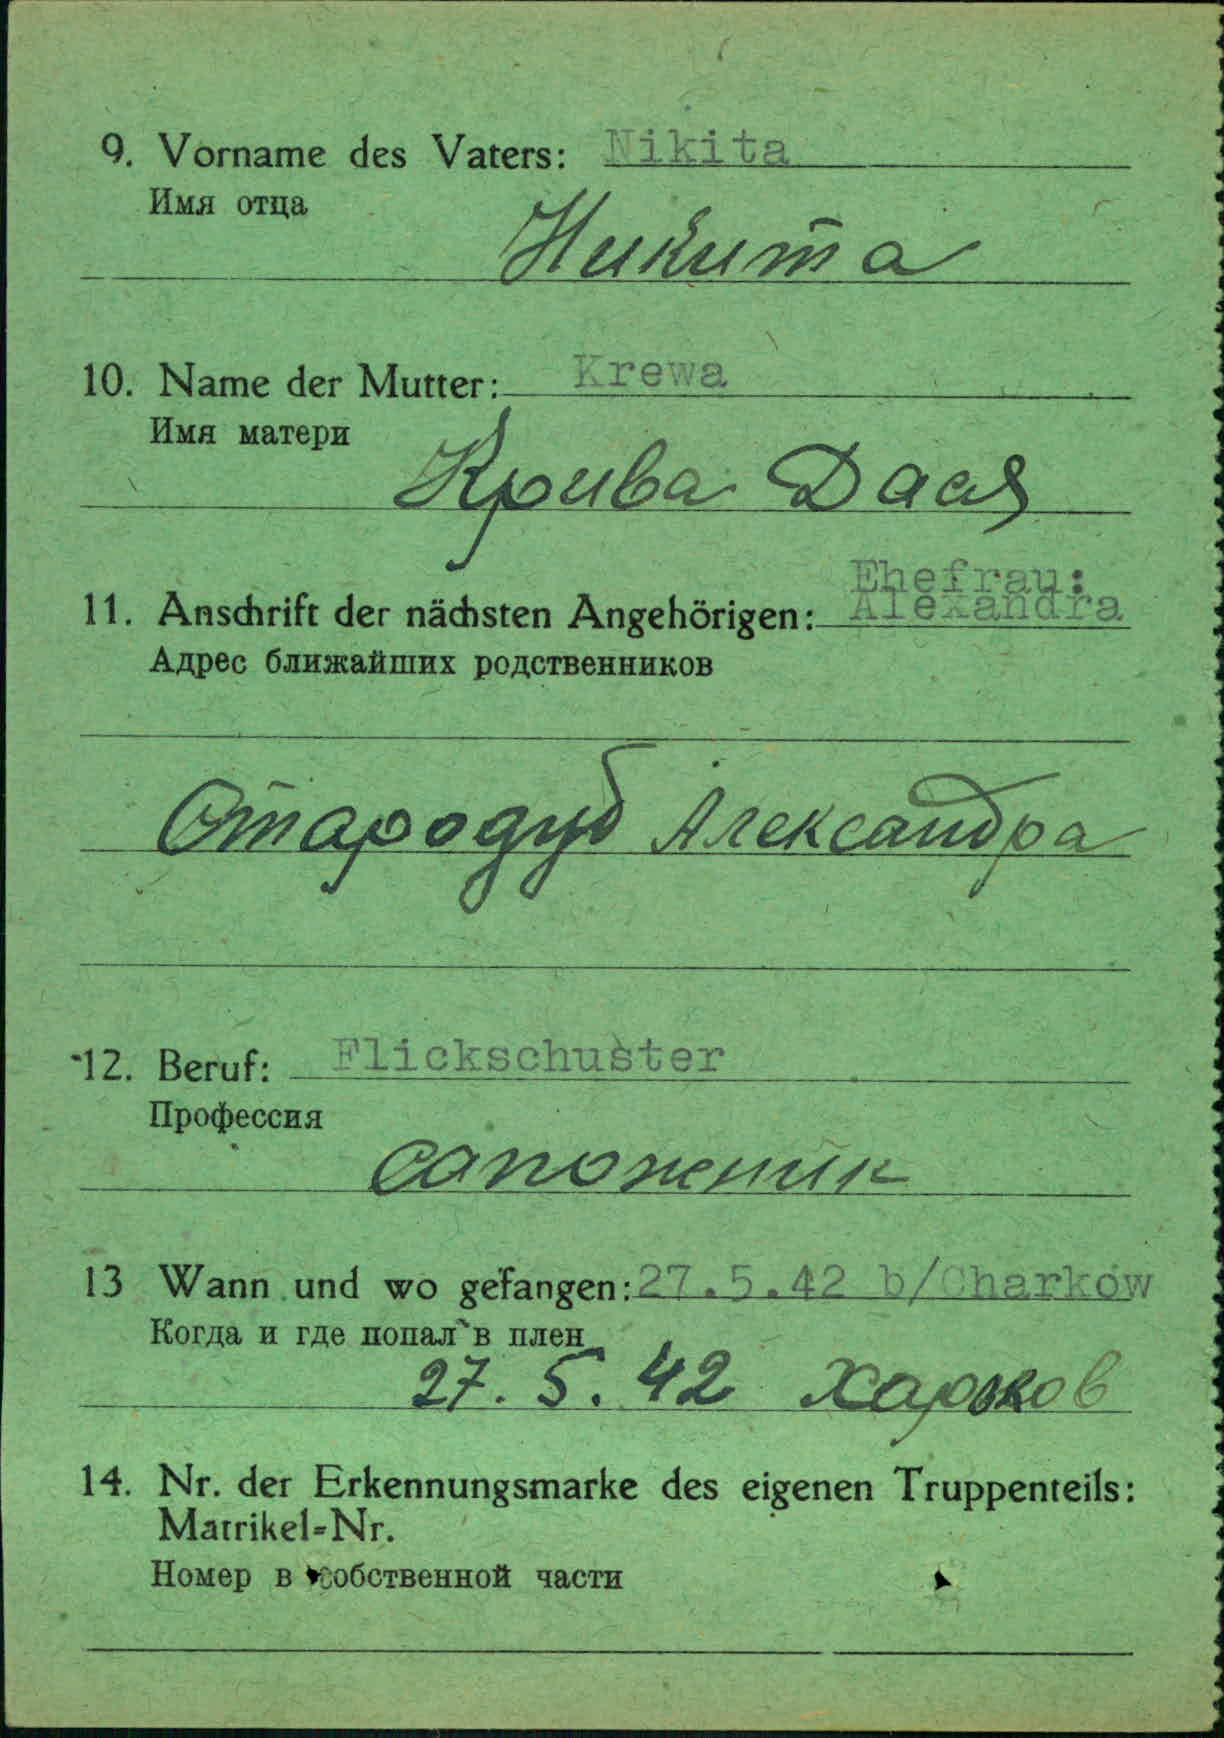 9. Vorname des Vaters: Nikita
Имя отца
Никита
10. Name der Mutter: Krewa
Имя матери
Крива Дася
Ehefrau:
11. Anschrift der nächsten Angehörigen: Alexandra
Адрес ближайших родственников
Стародуб Александра
12. Beruf: Flickschuster
Профессия
сапожник
13 Wann und wo gefangen: 27.5.42 b/Charkow
Когда и где попал в плен
27. 5. 42 Харков
14. Nr. der Erkennungsmarke des eigenen Truppenteils:
Matrikel=Nr.
Номер в собственной части